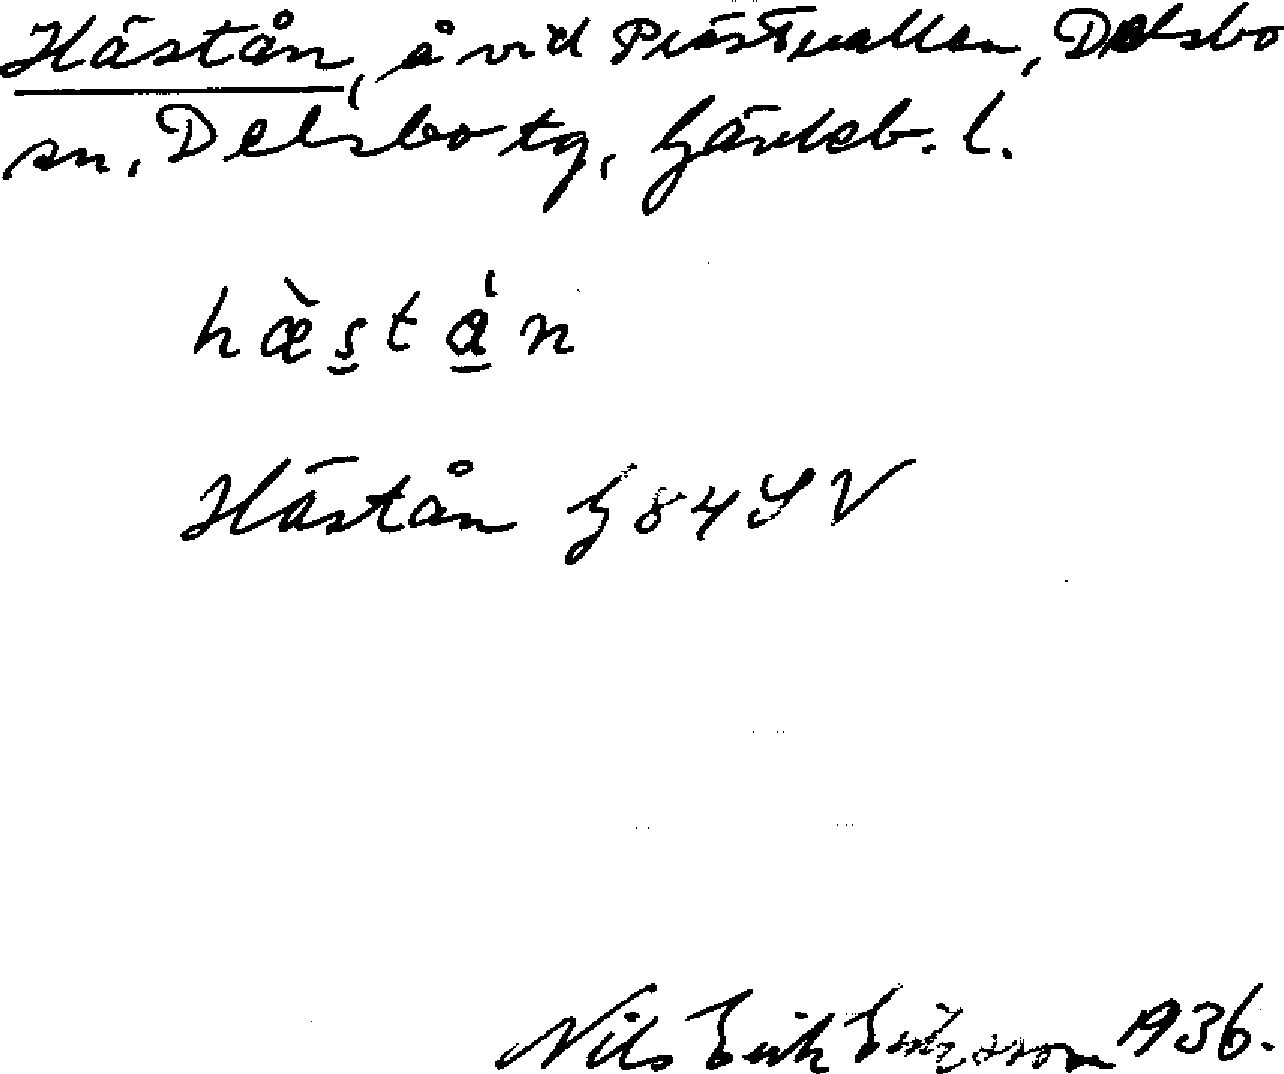 Hästån, å vid Prästvallen, Delsbo
sn, Delsbo tg, Gävleb. l.
hæ̀stá̱n
Hästån G84SV
Nils Erik Eriksson 1936.